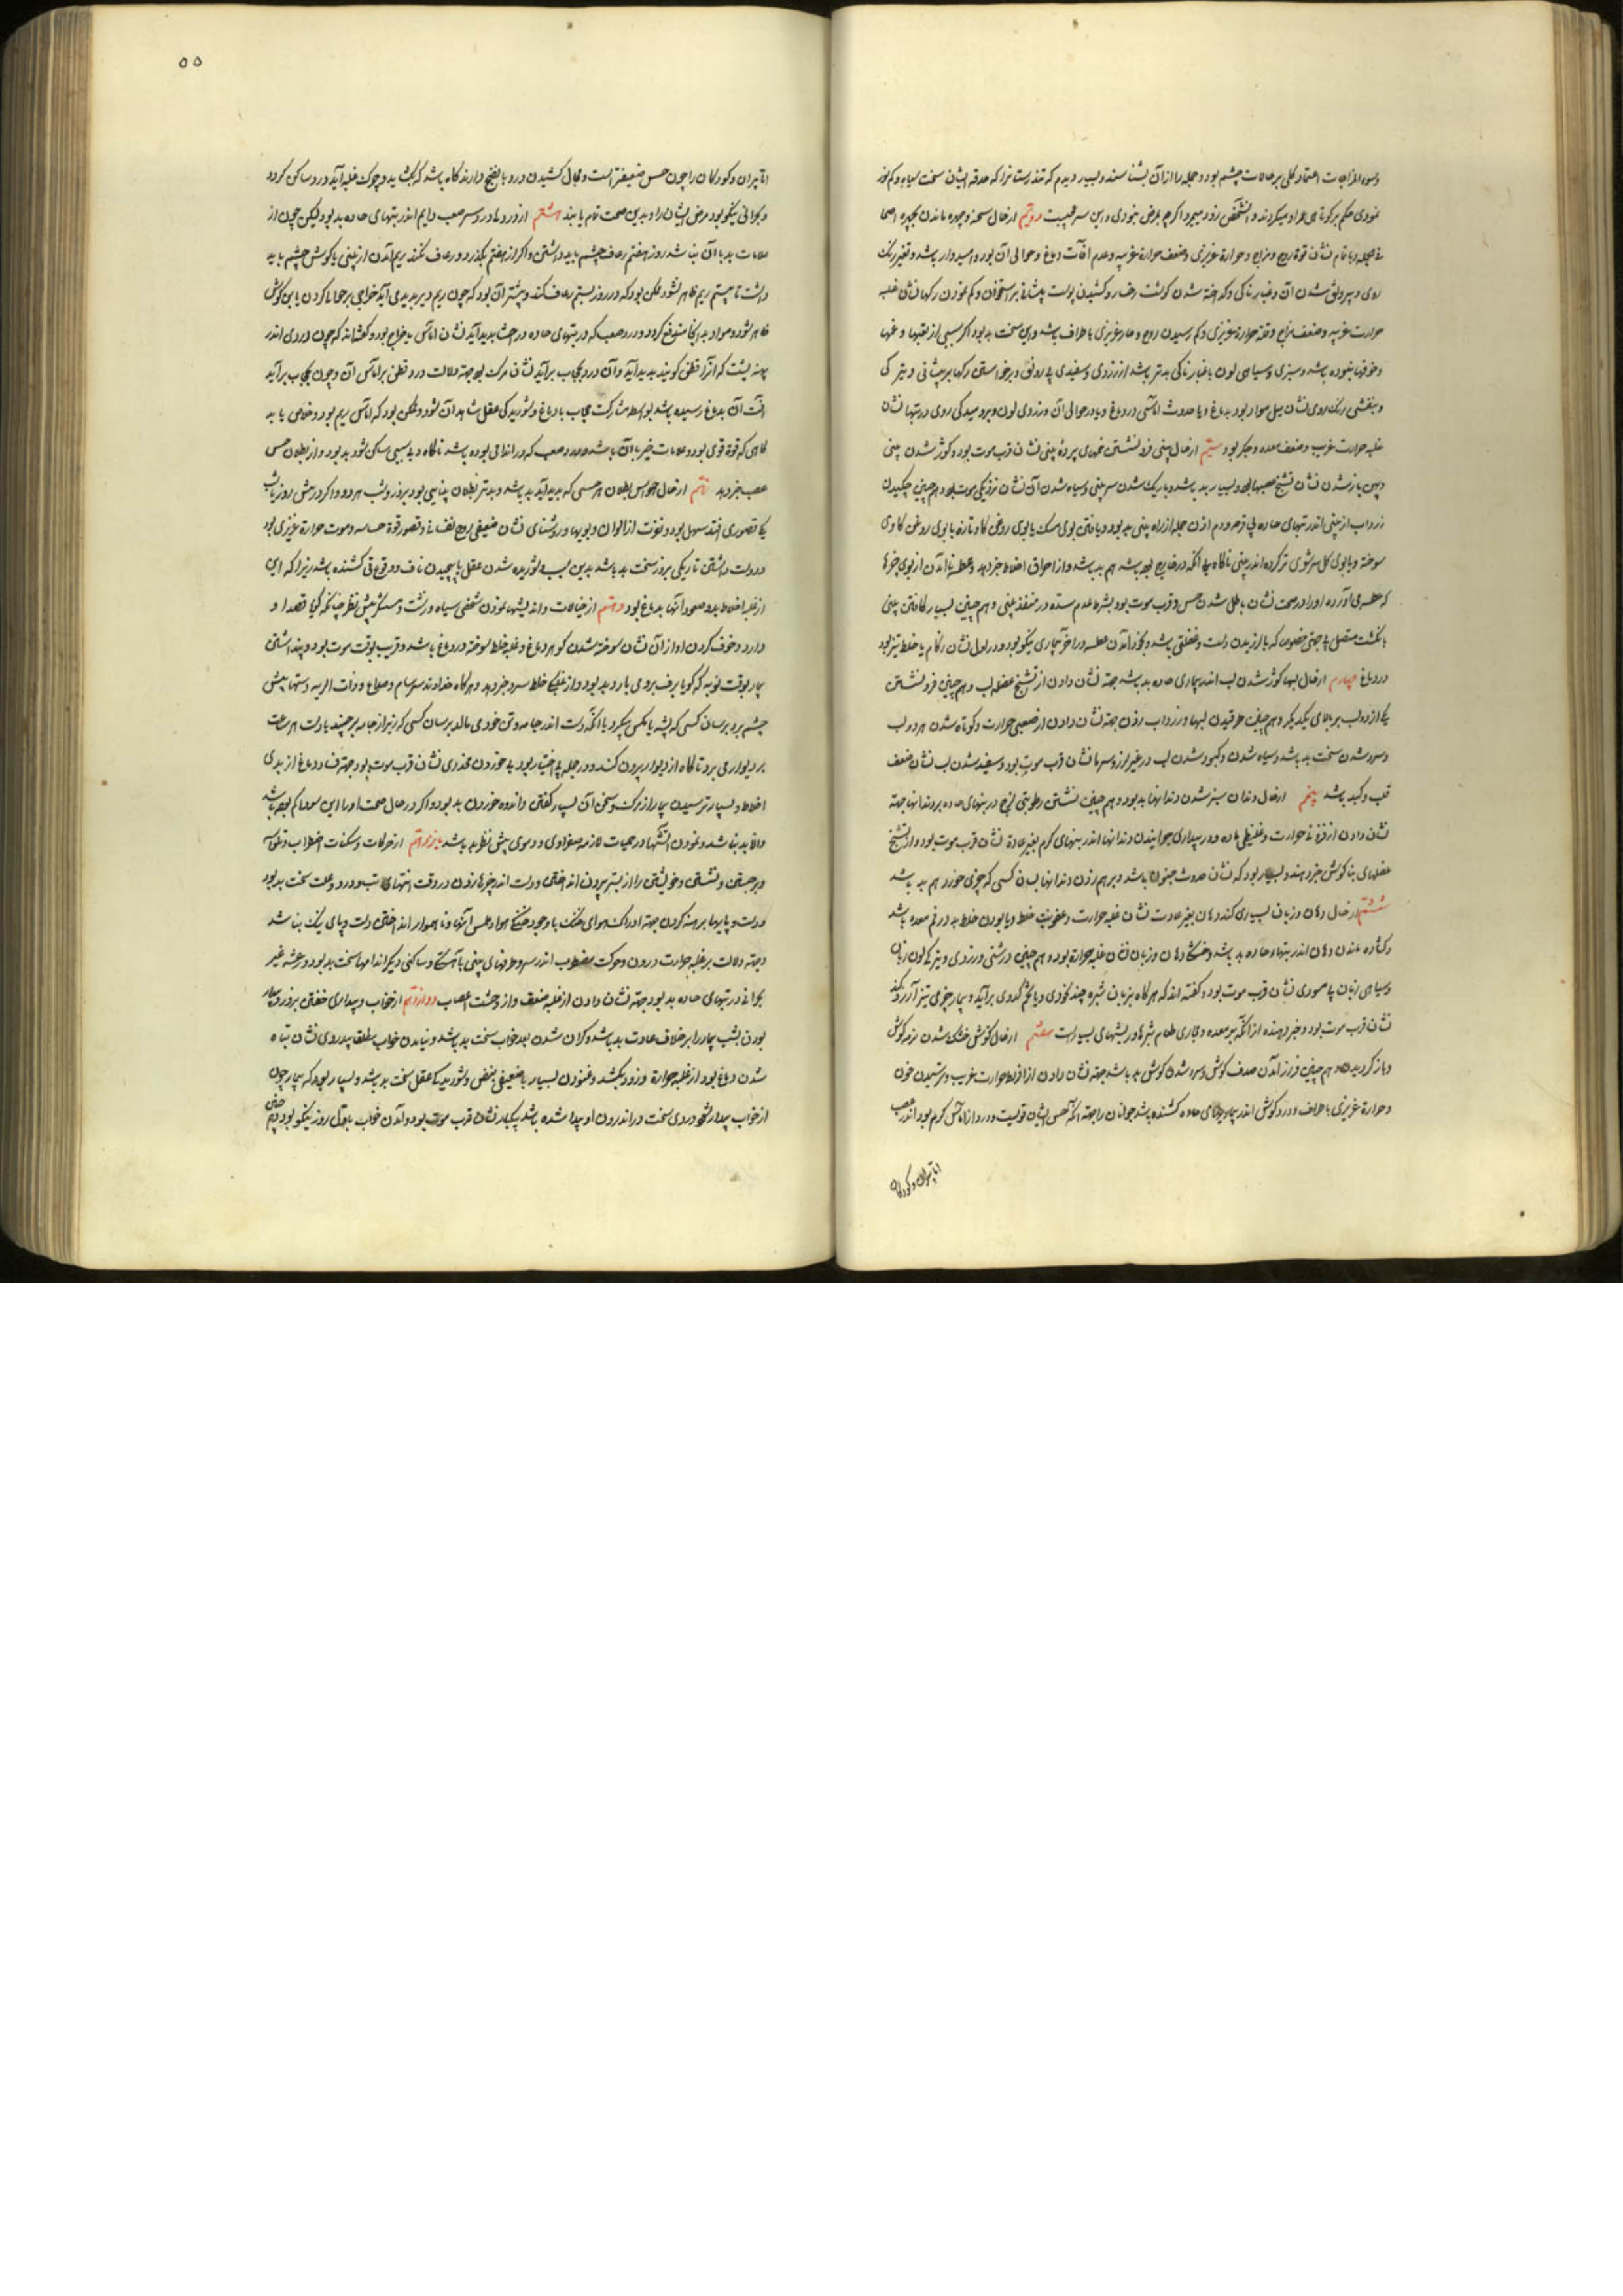 وسوء المزاجات اعتماد کلی بر حالات چشم بود و جمله را از آن بشناسند و بسیار دیدم که تندرستانرا که حدقه ایشان سخت سیاه و کم نور
نمودی حکم بر کوتاهی عمر او میکردند و آنشخص زود میمرد اگرچه بمرض نبودی و این سر عجیبست دویم از حال سحنه و چهره ماندن بچهره اصحا
روی و بیرونق شدن آن و غبارناکی و گداخته شدن گوشت رخسار و کشیدن پوست پیشانی بر استخوان و کم نمودن رگها نشان غلبه
حرارت غریبه و ضعف مزاج و قلة حرارة غریزی و کم رسیدن روح و حار غریزی باطراف باشد و این سخت بد بود اگر سببی از تعبها و غمها
و خوفها نبوده باشد و سبزی و سیاهی لون با غبارناکی بدتر باشد از زردی و سفیدی بی رونق و برخواستن رگها بر پیشانی و تیرگی
و بنفشی رنگ روی نشان میل مواد بود بدماغ و یا حدوث اماسی در دماغ و یا در حوالی آن و زردی لون و پردمیدگی روی در تبها نشان
غلبه حرارت غریب و ضعف معده و جگر بود سیم از حال بینی فرو نشستن غمهای پرده بینی نشان قرب موت بود و کوژ شدن بینی
و پهن باز شدن نشان تشنج عصبها بود و بسیار بد باشد و باریک شدن سر بینی و سیاه شدن آن نشان نزدیکی موت بود و هم چنین چکیدن
زرداب از بینی اندر تبهای حاده بی قرحه و دم زدن جمله از راه بینی بد بود و یافتن بوی مسک یا بوی روغن کاو تازه یا بوی روغن کاوی
سوخته و یا بوی کل سرشوی تر کرده اندر بینی ناگاه بی آنکه در خارج بود باشد هم بد باشد و از احراق اخلاط خبر دهد و عطسه نا آمدن از بوی چیزها
که عطسه می آورده او را در صحت نشان باطل شدن حس و قرب موت بود بشرط عدم سده در منفذ بینی و هم چنین بسیار کافتن بینی
بانگشت متصل بی جهتی خصوص که با لرزیدن دست و خفقی باشد و بخود آمدن عطسه در آخر بیماری نیکو بود و در اول نشان زکام یا خلط تیز بود
در دماغ چهارم از حال لبها کوژ شدن لب اندر بیماری حاده بد باشد جهته نشان دادن از تشنج عضله لب و هم چنین فرو نشستن
یکی از دو لب بر بالای یکدیکر و هم چنین طرقیدن لبها و زرداب زدن جهته نشان دادن از صعبی حرارت و کوتاه شدن هر دو لب
و سرد شدن سخت بد باشد و سیاه شدن و کبود شدن لب در غیر لرز و سرما نشان قرب موت بود و سفید شدن لب نشان ضعف
قلب و کبد باشد پنجم از حال دندان سبز شدن دندانها بد بود و هم چنین نشستن رطوبتی لزج در تبهای حاده بر دندانها جهته
نشان دادن از فزونی حرارت و غلیظی ماده و در بیداری جوانیدن دندانها اندر تبهای کرم بغیر عادة نشان قرب موت بود و از تشنج
عضلهای بناگوش خبر دهند و بسیار بود که نشان حدوث جنون باشد و بر هم زدن دندانها بسان کسی که چیزی خورد هم بد باشد
ششم از حال دهان و زبان بسیاری کند دهان بغیر عادت نشان غلبه حرارت و عفونت خلط و یا بودن خلط بد در فم معده باشد
و گشاده ماندن دهان اندر تبها حاده بد باشد و خشکی دهان و زبان نشان غلبه حرارة بود و هم چنین درشتی و زردی و تیرگی لون زبان
و سیاهی زبان بی صموری نشان قرب موت بود و گفته اند که هرگاه بر زبان بثره چند نخودی و یا تخم کدوی برآید و بیمار چیزی تیز آرزو کند
نشان قرب موت بود و خبر دهنده از آنکه بر معده و مجاری طعام بثرها و ریشهای بسیار است هفتم از حال گوش خشک شدن نرمه گوش
و باز گردیدن و هم چنین فراز آمدن صدف گوش و سرد شدن گوش بد باشد جهته نشان دادن از افراط حرارت غریب و نرسیدن خون
و حرارة غریزی باطراف و درد گوش اندر بیماریهای حاده کشنده باشد جوانان را جهته آنکه حس ایشان قویست و درد از اماس کرم بود اندر عصب
اما پیران و کودکان
۵۵
اما پیران و کودکان را چون حس ضعیفتر است و مجال کشیدن درد با نضج دارند گاه باشد که بگشاید و چرک غلبه آید درد ساکن گردد
و بحرانی نیکو بود مرض ایشان را و بدین صحت تمام یابند هشتم از دردها درد سر صعب دایم اندر تبهای حاده بد بود لیکن چون از
علامات بد با آن نباشد روز هفتم رعاف چشم باید داشتن و اگر از هفتم بگذرد و رعاف نکند ریم آمدن از بینی یا گوش چشم باید
داشت تا بیستم ریم ظاهر شود و ممکن بود که در روز بیستم رعاف کند و بیشتر آن بود که چون ریم دیر پدید می آید خراجی بر حوالی گردن یا بن گوش
ظاهر شود و مواد به آنجا مندفع گردد و درد صعب که در تبهای حاده در احشا پدید آید نشان اماس یا خراج بود و گفته اند که چون دردی اندر
مهره پشت که آنرا قطن گویند پدید آید و آن درد بحجاب برآید نشان مرگ بود جهته دلالت درد قطن بر اماس آن و چون بحجاب برآید
آفت آن بدماغ رسیده باشد بواسطه مشارکت حجاب با دماغ و شوریدگی عقل شاهد آن شود و ممکن بود که اماس ریم بود و خلاص یابد
گاهی که قوة قوی بود و علامات خیر با آن باشد و درد صعب که در اندامی بوده باشد ناگاه و بی سببی ساکن شود بد بود و از بطلان حس
عصب خبر دهد نهم از حال حواس بطلان هر حسی که پدید آید بد باشد و بدتر بطلان بینایی بود بروز و شب هر دو و اگر در بینش روز یا شب
یکی قصوری افتد سهل بود و نفرت از الوان و بویها و روشنای نشان ضعیفی روح نفسانی و قصور قوة حساسه و موت حرارة غریزی بود
و دوست داشتن تاریکی بروز سخت بد باشد بدین سبب و شوریده شدن عقل با پیچیدن ناف و وقوع قی کشنده باشد زیرا که این
از غلبه اخلاط بد و صعود آنها بدماغ بود دهم از خیالات و اندیشها نمودن شخص سیاه و زشت و سهمگین پیش نظر چنانکه گویا قصد او
دارد و خوف کردن او از آن نشان سوخته شدن گوهر دماغ و غلبه خلط سوخته در دماغ باشد و قریب بوقت موت بود و پنداشتن
بیمار بوقت نوبه که گویا برف بر وی می بارد بد بود و از غلبگی خلط سرد خبر دهد و هرگاه خداوند سرسام و صداع و ذات الریه دستها پیش
چشم برد بر سان کسی که پشه یا مگس میگیرد یا آنکه دست اندر جامه و تن خود می مالد بر سان کسی که زیر از جامه برچیند یا دست هر ساعت
بر دیوار می برد تا کاه از دیوار بیرون کند و در جمله بی اختیار بود بی خوردن مخدری نشان قرب موت بود جهته فساد دماغ از بدی
اخلاط و بسیار ترسیدن بیمار از مرگ و سخن آن بسیار گفتن و اندوه خوردن بد بود و اگر در حال صحت او را این سودا کم بوده باشد
والا بد نباشد و نمودن آتشها در حمیات لازمه صفراوی و دموی پیش نظر بد باشد یازدهم از حرکات و سکنات اضطراب و تلواسه
و برجستن و نشستن و خویشتن را از بستر بیرون انداختن و دست اندر چیزها زدن در وقت انتهای تب و درد و علت سخت بد بود
و دست و پایها برهنه کردن جهته ادراک هوای خنک با وجود خنکی هوا و علس آنها و ناهموار انداختن دست و پای نیک نباشد
و جهته دلالت بر غلبه حرارت درون و حرکت مضطرب اندر سر و طرفهای تن با آهستگی و ساکنی دیگر اندامها سخت بد بود و رعشه غیر
بحرانی در تبهای حاده بد بود جهته نشان دادن از غلبه ضعف و از وحشت اعصاب دوازدهم از خواب و بیداری خفتن بروز و بیدار
بودن بشب بیمار را بر خلاف عادت بد باشد و گران شدن بعد خواب سخت بد باشد و نیامدن خواب مطلقا بیدردی نشان تباه
شدن دماغ بود از غلبه حرارة و زود بکشد و غنودن بسیار با ضعیفی نبض و شوریدگی عقل سخت بد باشد و بسیار بود که بیمار چون
از خواب بیدار شود دردی سخت در اندرون او پیدا شده باشد یکبار نشان قرب موت بود و آمدن خواب باوّل روز نیکو بود